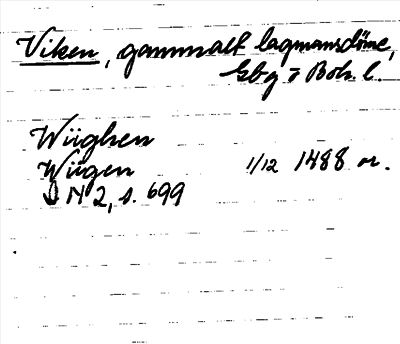 Viken, gammalt lagmansdöme,
Gbg o Boh. l.
Wiighen
Wiigen 1/12 1488 or.
DN 2, s. 699